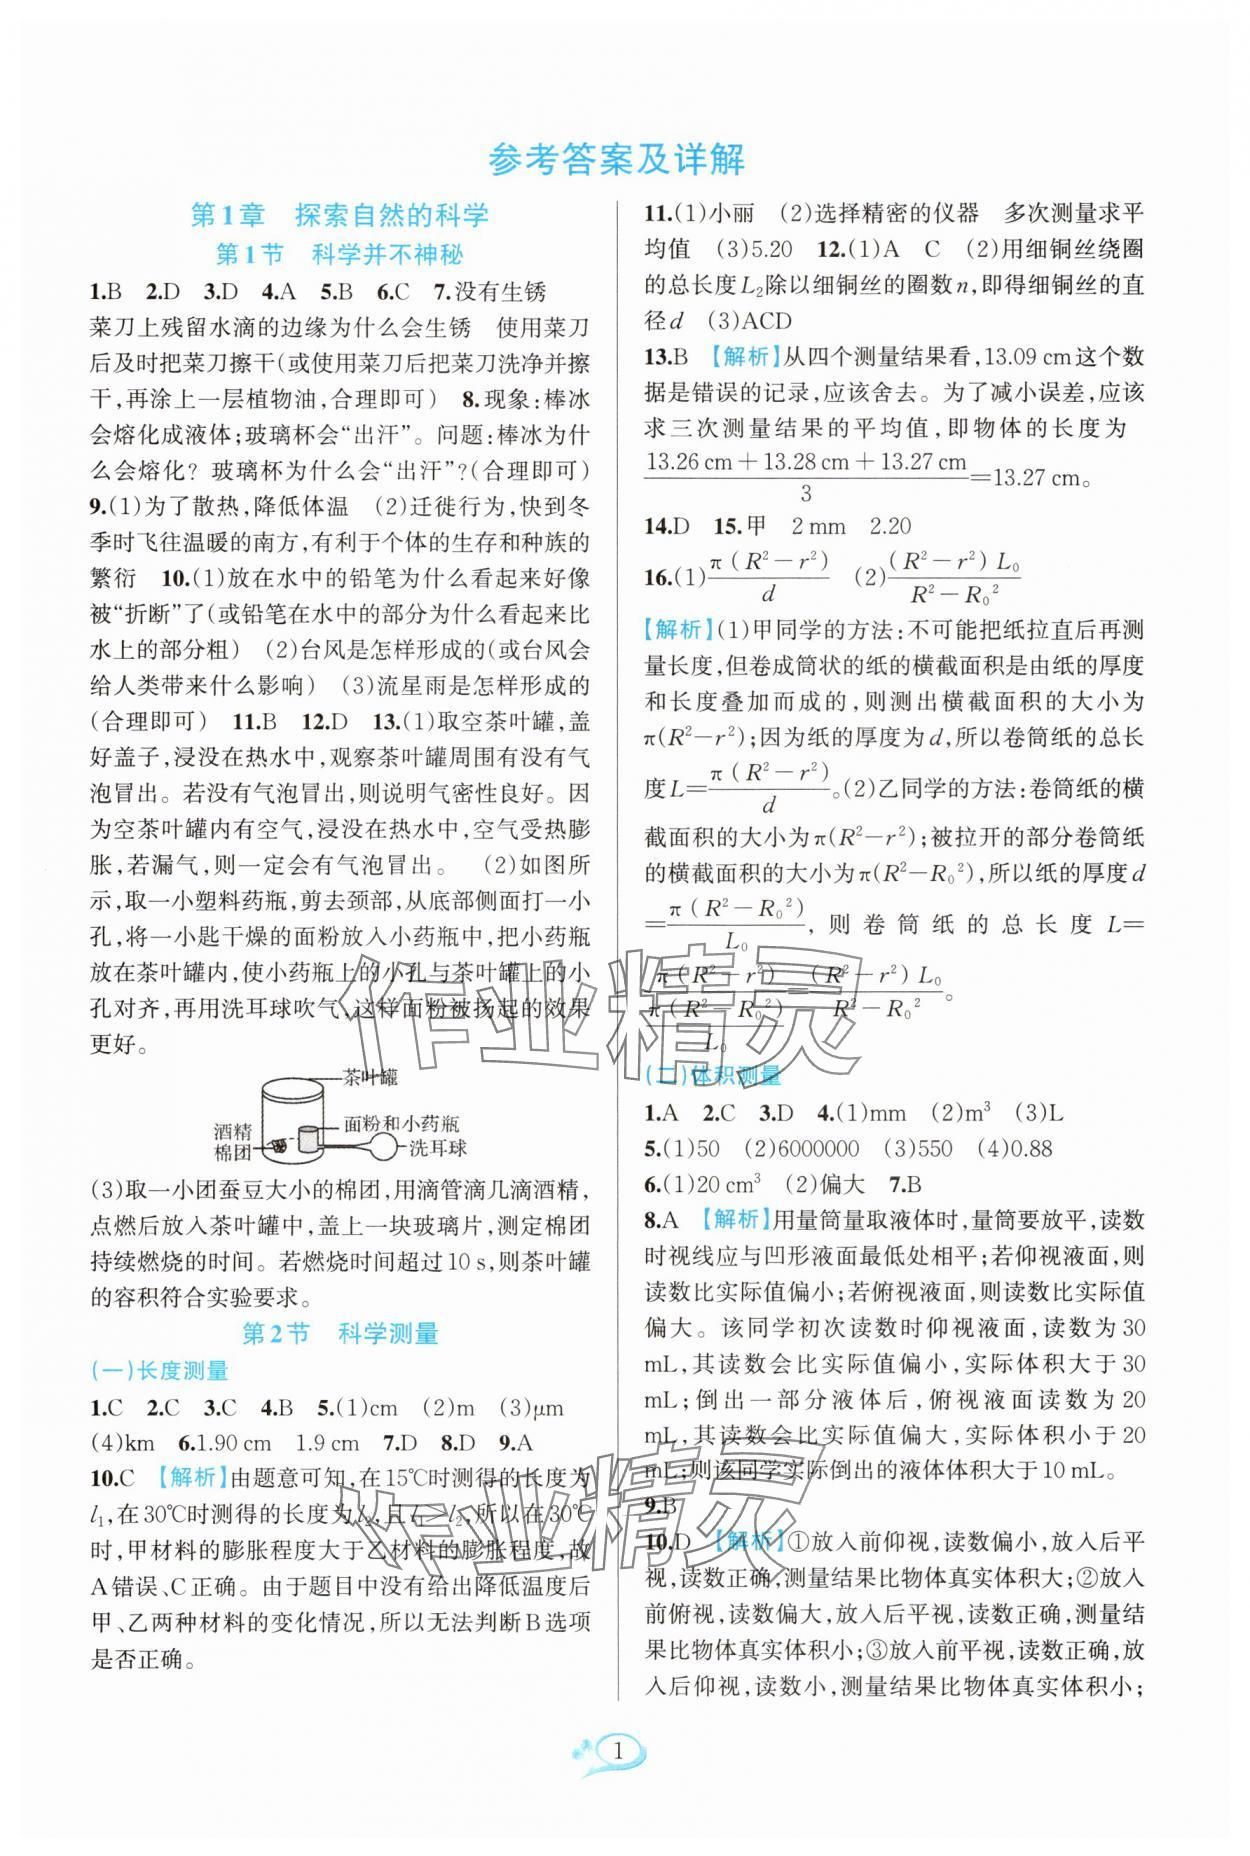 参考答案及详解
第1章　探索自然的科学
第1节　科学并不神秘
1.B　2.D　3.D　4.A　5.B　6.C　7.没有生锈
菜刀上残留水滴的边缘为什么会生锈　使用菜刀
后及时把菜刀擦干(或使用菜刀后把菜刀洗净并擦
干,再涂上一层植物油,合理即可)　8.现象:棒冰
会熔化成液体;玻璃杯会“出汗”。问题:棒冰为什
么会熔化？玻璃杯为什么会“出汗”?(合理即可)
9.(1)为了散热,降低体温　(2)迁徙行为,快到冬
季时飞往温暖的南方,有利于个体的生存和种族的
繁衍　10.(1)放在水中的铅笔为什么看起来好像
被“折断”了(或铅笔在水中的部分为什么看起来比
水上的部分粗)　(2)台风是怎样形成的(或台风会
给人类带来什么影响)　(3)流星雨是怎样形成的
(合理即可)　11.B　12.D　13.(1)取空茶叶罐,盖
好盖子,浸没在热水中,观察茶叶罐周围有没有气
泡冒出。若没有气泡冒出,则说明气密性良好。因
为空茶叶罐内有空气,浸没在热水中,空气受热膨
胀,若漏气,则一定会有气泡冒出。　(2)如图所
示,取一小塑料药瓶,剪去颈部,从底部侧面打一小
孔,将一小匙干燥的面粉放入小药瓶中,把小药瓶
放在茶叶罐内,使小药瓶上的小孔与茶叶罐上的小
孔对齐,再用洗耳球吹气,这样面粉被扬起的效果
更好。
茶叶罐
酒精
棉团
面粉和小药瓶
洗耳球
(3)取一小团蚕豆大小的棉团,用滴管滴几滴酒精,
点燃后放入茶叶罐中,盖上一块玻璃片,测定棉团
持续燃烧的时间。若燃烧时间超过10 s,则茶叶罐
的容积符合实验要求。
第2节　科学测量
(一)长度测量
1.C　2.C　3.C　4.B　5.(1)cm　(2)m　(3)μm
(4)km　6.1.90 cm　1.9 cm　7.D　8.D　9.A
10.C　【解析】由题意可知,在15℃时测得的长度为
l₁,在30℃时测得的长度为l₂,且l₁＞l₂,所以在30℃
时,甲材料的膨胀程度大于乙材料的膨胀程度,故
A错误、C正确。由于题目中没有给出降低温度后
甲、乙两种材料的变化情况,所以无法判断B选项
是否正确。
11.(1)小丽　(2)选择精密的仪器　多次测量求平
均值　(3)5.20　12.(1)A　C　(2)用细铜丝绕圈
的总长度L₂除以细铜丝的圈数n,即得细铜丝的直
径d　(3)ACD
13.B　【解析】从四个测量结果看,13.09 cm这个数
据是错误的记录,应该舍去。为了减小误差,应该
求三次测量结果的平均值,即物体的长度为
(13.26 cm＋13.28 cm＋13.27 cm)/3＝13.27 cm。
14.D　15.甲　2 mm　2.20
16.(1)π(R²－r²)/d　(2)(R²－r²)L₀/(R²－R₀²)
【解析】(1)甲同学的方法:不可能把纸拉直后再测
量长度,但卷成筒状的纸的横截面积是由纸的厚度
和长度叠加而成的,则测出横截面积的大小为
π(R²－r²);因为纸的厚度为d,所以卷筒纸的总长
度L＝π(R²－r²)/d。(2)乙同学的方法:卷筒纸的横
截面积的大小为π(R²－r²);被拉开的部分卷筒纸
的横截面积的大小为π(R²－R₀²),所以纸的厚度d
＝π(R²－R₀²)/L₀,则卷筒纸的总长度L＝
π(R²－r²)/(π(R²－R₀²)/L₀)＝(R²－r²)L₀/(R²－R₀²)。
(二)体积测量
1.A　2.C　3.D　4.(1)mm　(2)m³　(3)L
5.(1)50　(2)6000000　(3)550　(4)0.88
6.(1)20 cm³　(2)偏大　7.B
8.A　【解析】用量筒量取液体时,量筒要放平,读数
时视线应与凹形液面最低处相平;若仰视液面,则
读数比实际值偏小;若俯视液面,则读数比实际值
偏大。该同学初次读数时仰视液面,读数为30
mL,其读数会比实际值偏小,实际体积大于30
mL;倒出一部分液体后,俯视液面读数为20
mL,其读数会比实际值偏大,实际体积小于20
mL;则该同学实际倒出的液体体积大于10 mL。
9.B
10.D　【解析】①放入前仰视,读数偏小,放入后平
视,读数正确,测量结果比物体真实体积大;②放入
前俯视,读数偏大,放入后平视,读数正确,测量结
果比物体真实体积小;③放入前平视,读数正确,放
入后仰视,读数小,测量结果比物体真实体积小;
1
作业精灵
作业精灵